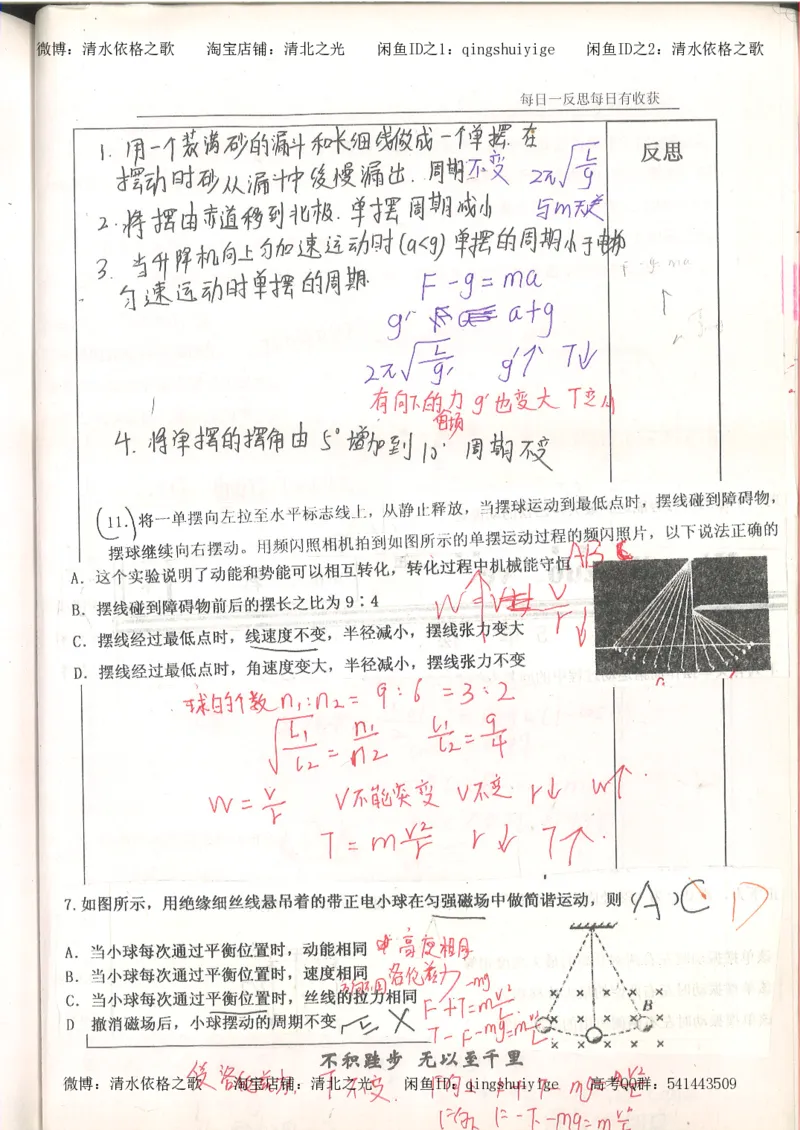 微博：清水依格之歌 淘宝店铺：清北之光 闲鱼ID之1：qingshuiyige 闲鱼ID之2：清水依格之歌
每日一反思每日有收获
反思
1. 用一个装满砂的漏斗和长细线做成一个单摆.在
摆动时砂从漏斗中缓慢漏出.周期不变 2π√L/g
2.将摆由赤道移到北极.单摆周期减小 与m无关
3. 当升降机向上匀加速运动时(a<g)单摆的周期小于电梯
匀速运动时单摆的周期.
F-g=ma
g' a+g
2π√L/g' g'↑ T↓
有向下的力 g'也变大 T变小
电场
4. 将单摆的摆角由5°增加到10° 周期不变
(11.)将一单摆向左拉至水平标志线上，从静止释放，当摆球运动到最低点时，摆线碰到障碍物，
摆球继续向右摆动。用频闪照相机拍到如图所示的单摆运动过程的频闪照片，以下说法正确的
A．这个实验说明了动能和势能可以相互转化，转化过程中机械能守恒 AB
B．摆线碰到障碍物前后的摆长之比为 9∶4
C．摆线经过最低点时，线速度不变，半径减小，摆线张力变大
D．摆线经过最低点时，角速度变大，半径减小，摆线张力不变
球的个数 n₁:n₂= 9:6 =3:2
√L₁/L₂ = n₁/n₂ L₁/L₂ = 9/4
W=v/r V不能突变 V不变 r↓ W↑
T=mv²/r r↓ T↑
7.如图所示，用绝缘细丝线悬吊着的带正电小球在匀强磁场中做简谐运动，则（A）C D
A．当小球每次通过平衡位置时，动能相同 高度相同
B．当小球每次通过平衡位置时，速度相同
C．当小球每次通过平衡位置时，丝线的拉力相同 洛伦兹力
F+T-mg=mv²/L
D 撤消磁场后，小球摆动的周期不变
T-F-mg=mv²/L
B
不积跬步 无以至千里
微博：清水依格之歌 淘宝店铺：清北之光 闲鱼ID：qingshuiyige 高考QQ群：541443509
T不变